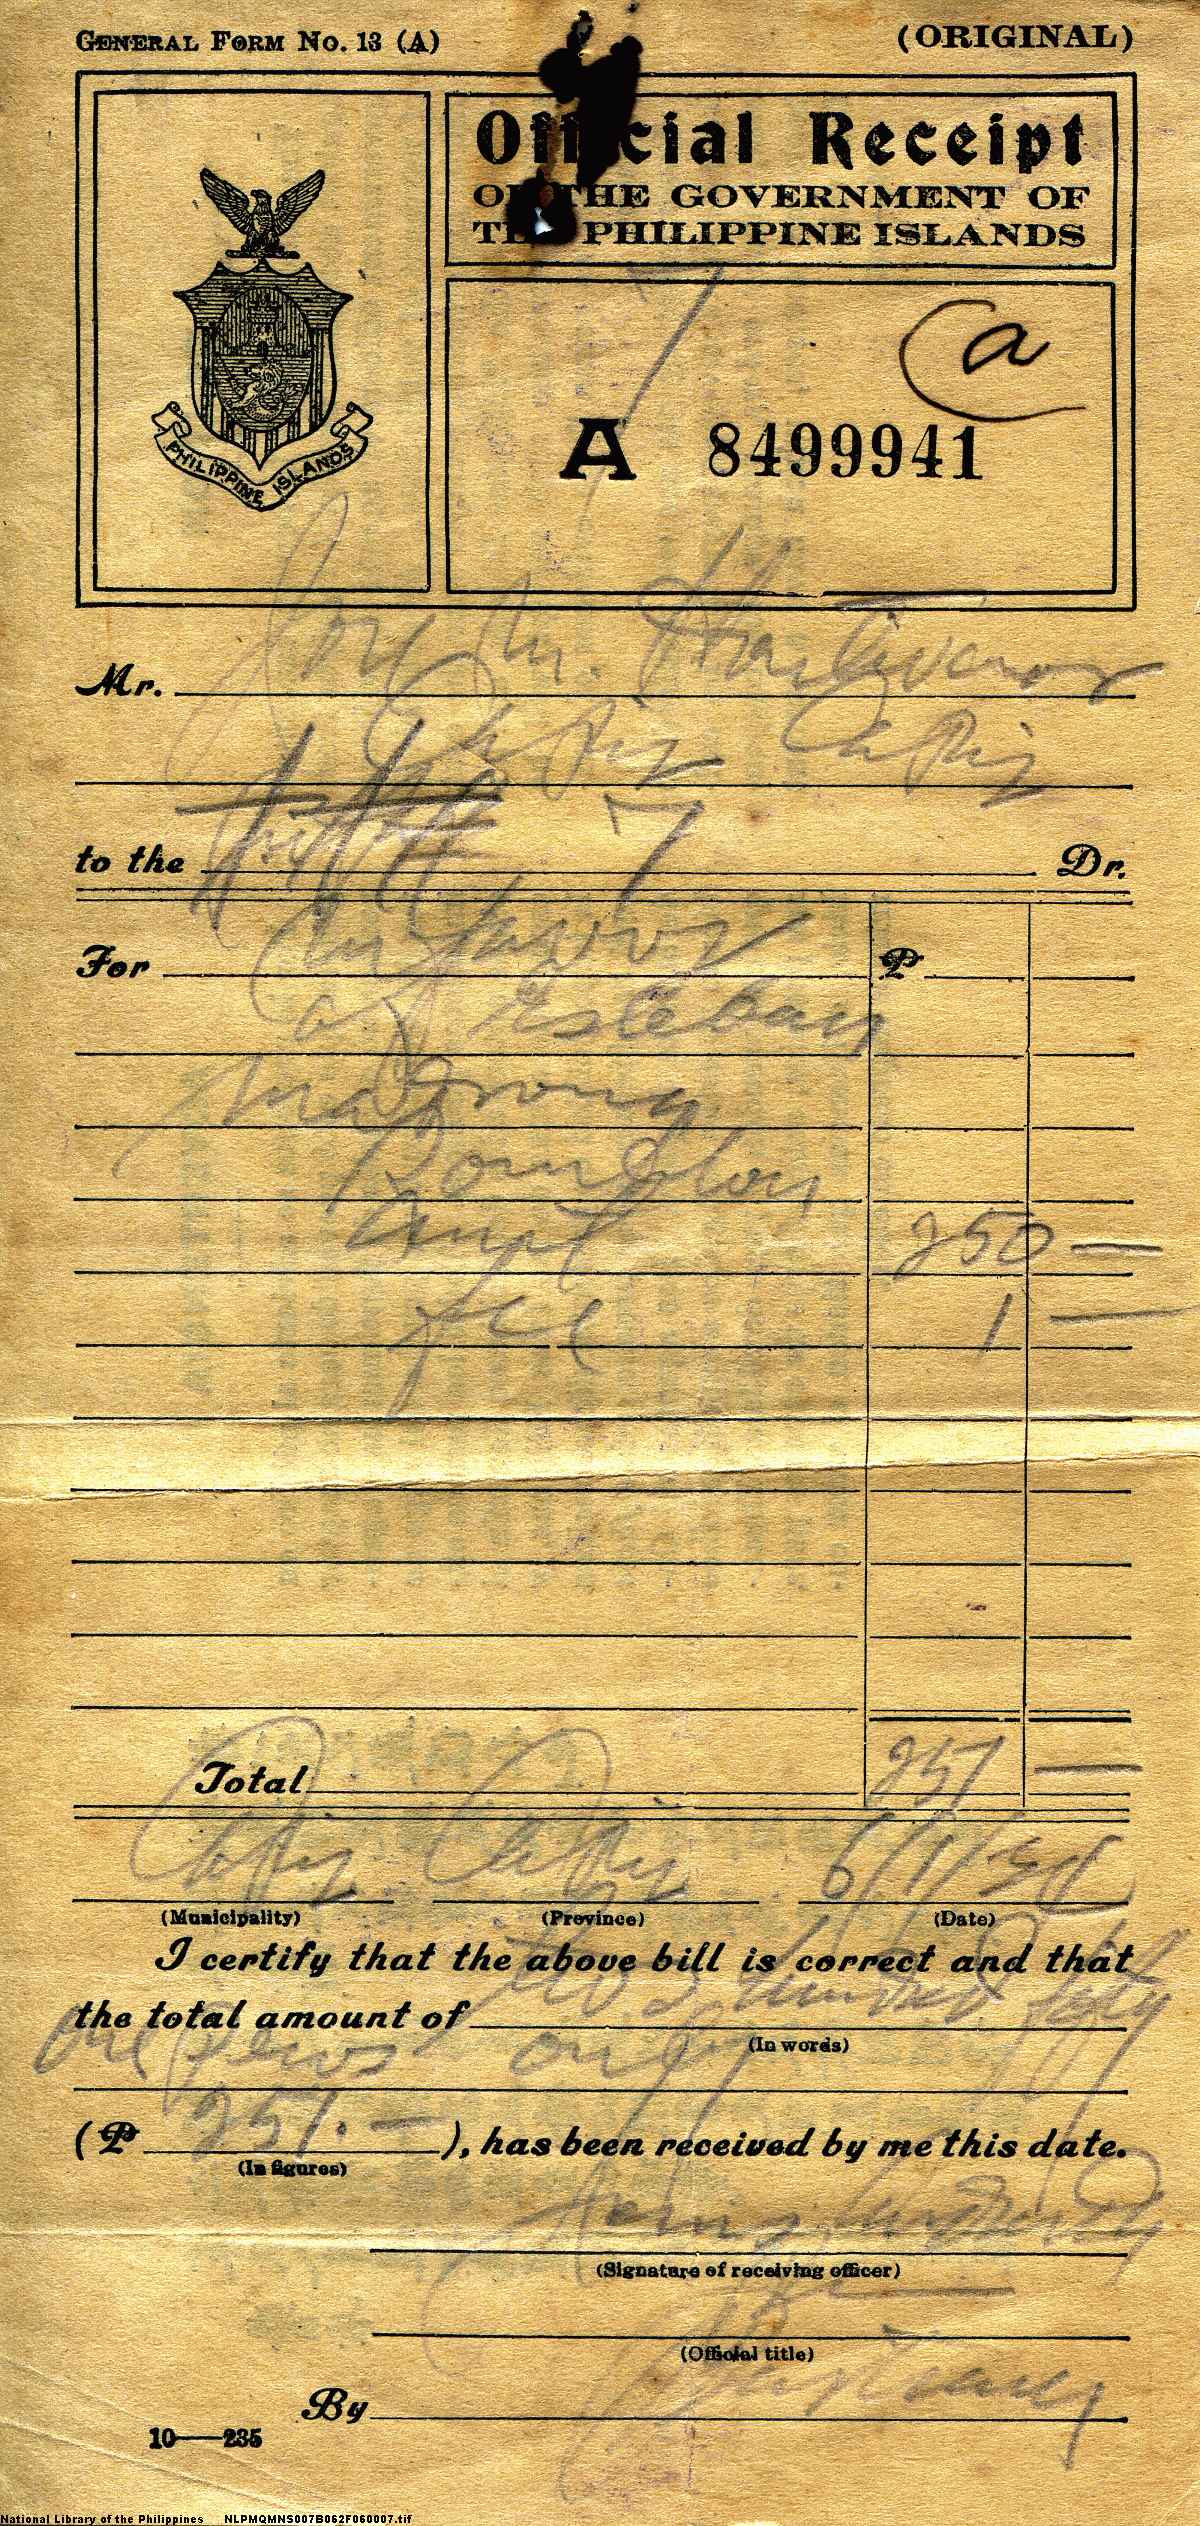 GENERAL FORM NO. 13 (A)
(ORIGINAL)
Official Receipt
OF THE GOVERNMENT OF
THE PHILIPPINE ISLANDS
PHILIPPINE ISLANDS
a
7
A 8499941
Mr. Jose M.
Capiz Capiz
to the 7 Dr.
For In favor ₱
of Esteban
Romblon
Amt 250 —
fee 1 —
Total 251 —
Capiz Capiz
(Municipality) (Province) (Date)
I certify that the above bill is correct and that
the total amount of two hundred fifty
(In words)
one pesos only
(₱ 251. — ), has been received by me this date.
(In figures)
(Signature of receiving officer)
(Official title)
By
10—235
National Library of the Philippines NLPMQMNS007B062F060007.tif